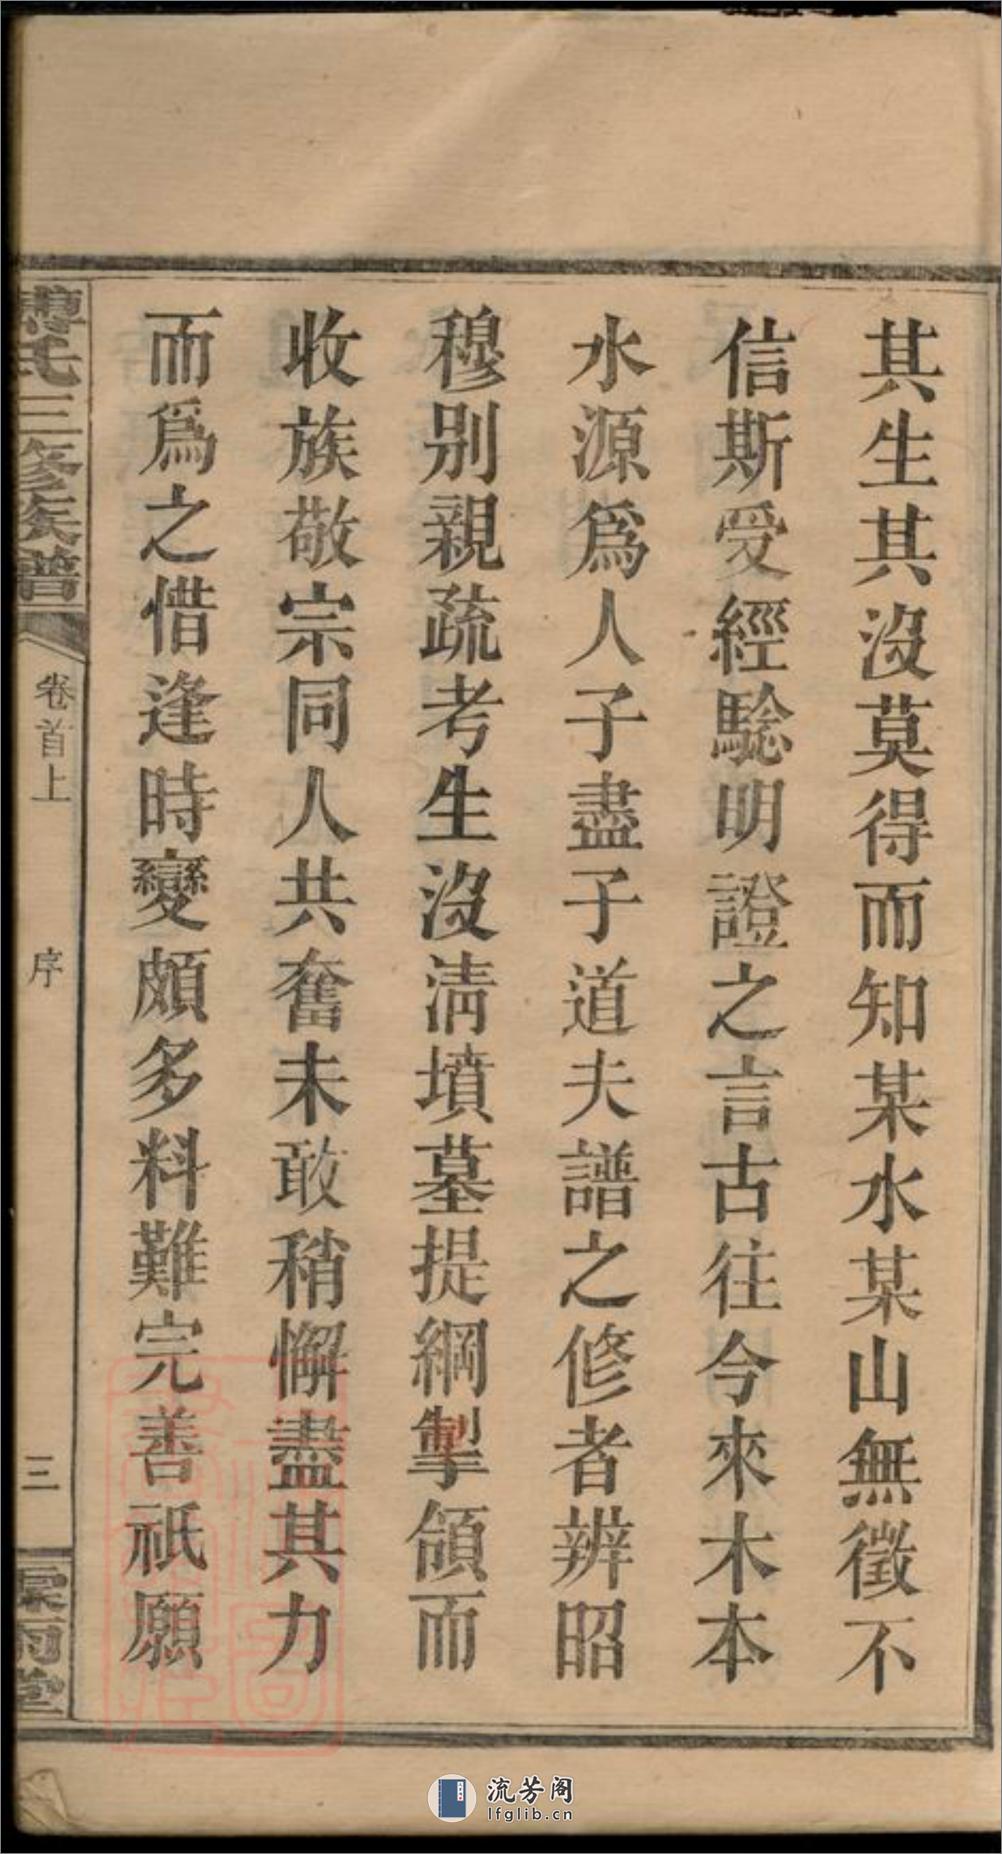 其生其沒莫得而知某水某山無徵不
信斯受經驗明證之言古往今來木本
水源爲人子盡子道夫譜之修者辨昭
穆別親疏考生沒清墳墓提綱挈領而
收族敬宗同人共奮未敢稍懈盡其力
而爲之惜逢時變頗多料難完善祇願
氏三修族譜
卷首上
序
三
堂
流芳阁
lfglib.cn